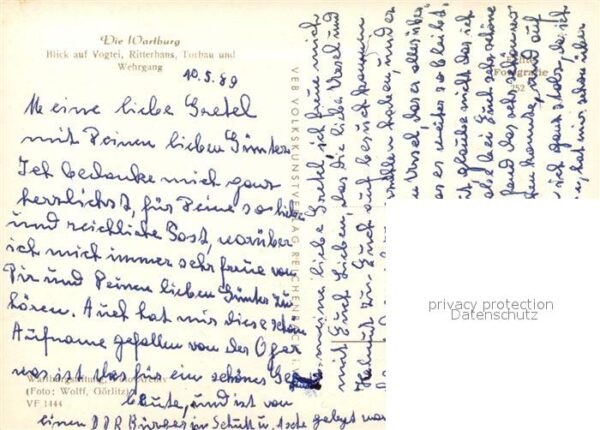 Die Wartburg
Blick auf Vogtei, Ritterhaus, Torbau und
Wehrgang
10.5.89
Meine liebe Gretel
mit Deinen lieben Günter.
Ich bedanke mich ganz
herzlichst, für Deine so lieben
und reichliche Post, worüber
ich mich immer sehr freue von
Dir und Deinen lieben Günter zu
hören. Auch hat mir diese schöne
Aufname gefallen von der Oper
was ist das für ein schönes
baute, und ist von
einen DDR Bürger in Schutt u. Asche gelegt
Wartburgstiftung,
(Foto: Wolff, Görlitz)
VF 1444
VEB VOLKSKUNSTVERLAG REICHENBACH
meine liebe Gretel ich freue mich
mit Euch Lieben, das die liebe Ursel und
Helmut zu Euch auf besuch kommen
wollen haben, und
Ursel, das er alles über
es weiter so bleibt.
ich glaube nicht das ich
bei Euch sehr schöne
fand das sehr schön wo
konnte, und auf
ich ganz stolz, da ich
hat mir schon über
Echte
Fotografie
252
privacy protection
Datenschutz